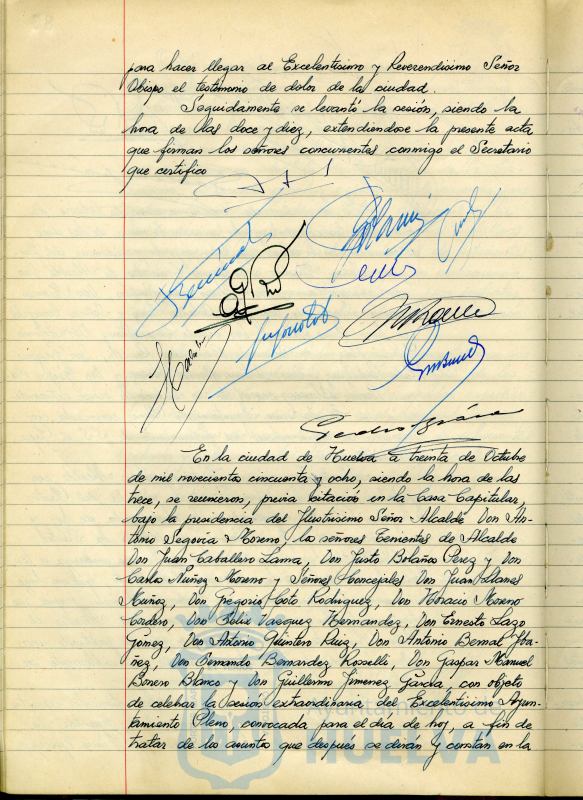 para hacer llegar al Excelentisimo y Reverendisimo Señor
Obispo el testimonio de dolor de la ciudad.
Seguidamente se levantó la sesión, siendo la
hora de las doce y diez, extendiendose la presente acta
que firman los señores concurrentes conmigo el Secretario
que certifico
En la ciudad de Huelva a treinta de Octubre
de mil novecientos cincuenta y ocho, siendo la hora de las
trece, se reunieron, previa citación en la Casa Capitular,
bajo la presidencia del Ilustrisimo Señor Alcalde Don An-
tonio Segovia Moreno los señores Tenientes de Alcalde
Don Juan Caballero Lama, Don Justo Bolaños Perez y Don
Carlos Nuñez Moreno y Señores Concejales Don Juan Llanes
Muñoz, Don Gregorio Coto Rodriguez, Don Horacio Moreno
Cordero, Don Felix Vazquez Hernandez, Don Ernesto Lazo
Gomez, Don Antonio Quintero Ruiz, Don Antonio Bernal Iba-
ñez, Don Fernando Bernardez Rosselli, Don Gaspar Manuel
Bonero Blanco y Don Guillermo Jimenez Garcia, con objeto
de celebrar la sesión extraordinaria del Excelentisimo Ayun-
tamiento Pleno, convocada para el dia de hoy, a fin de
tratar de los asuntos que después se dirán y constan en la
HUELVA